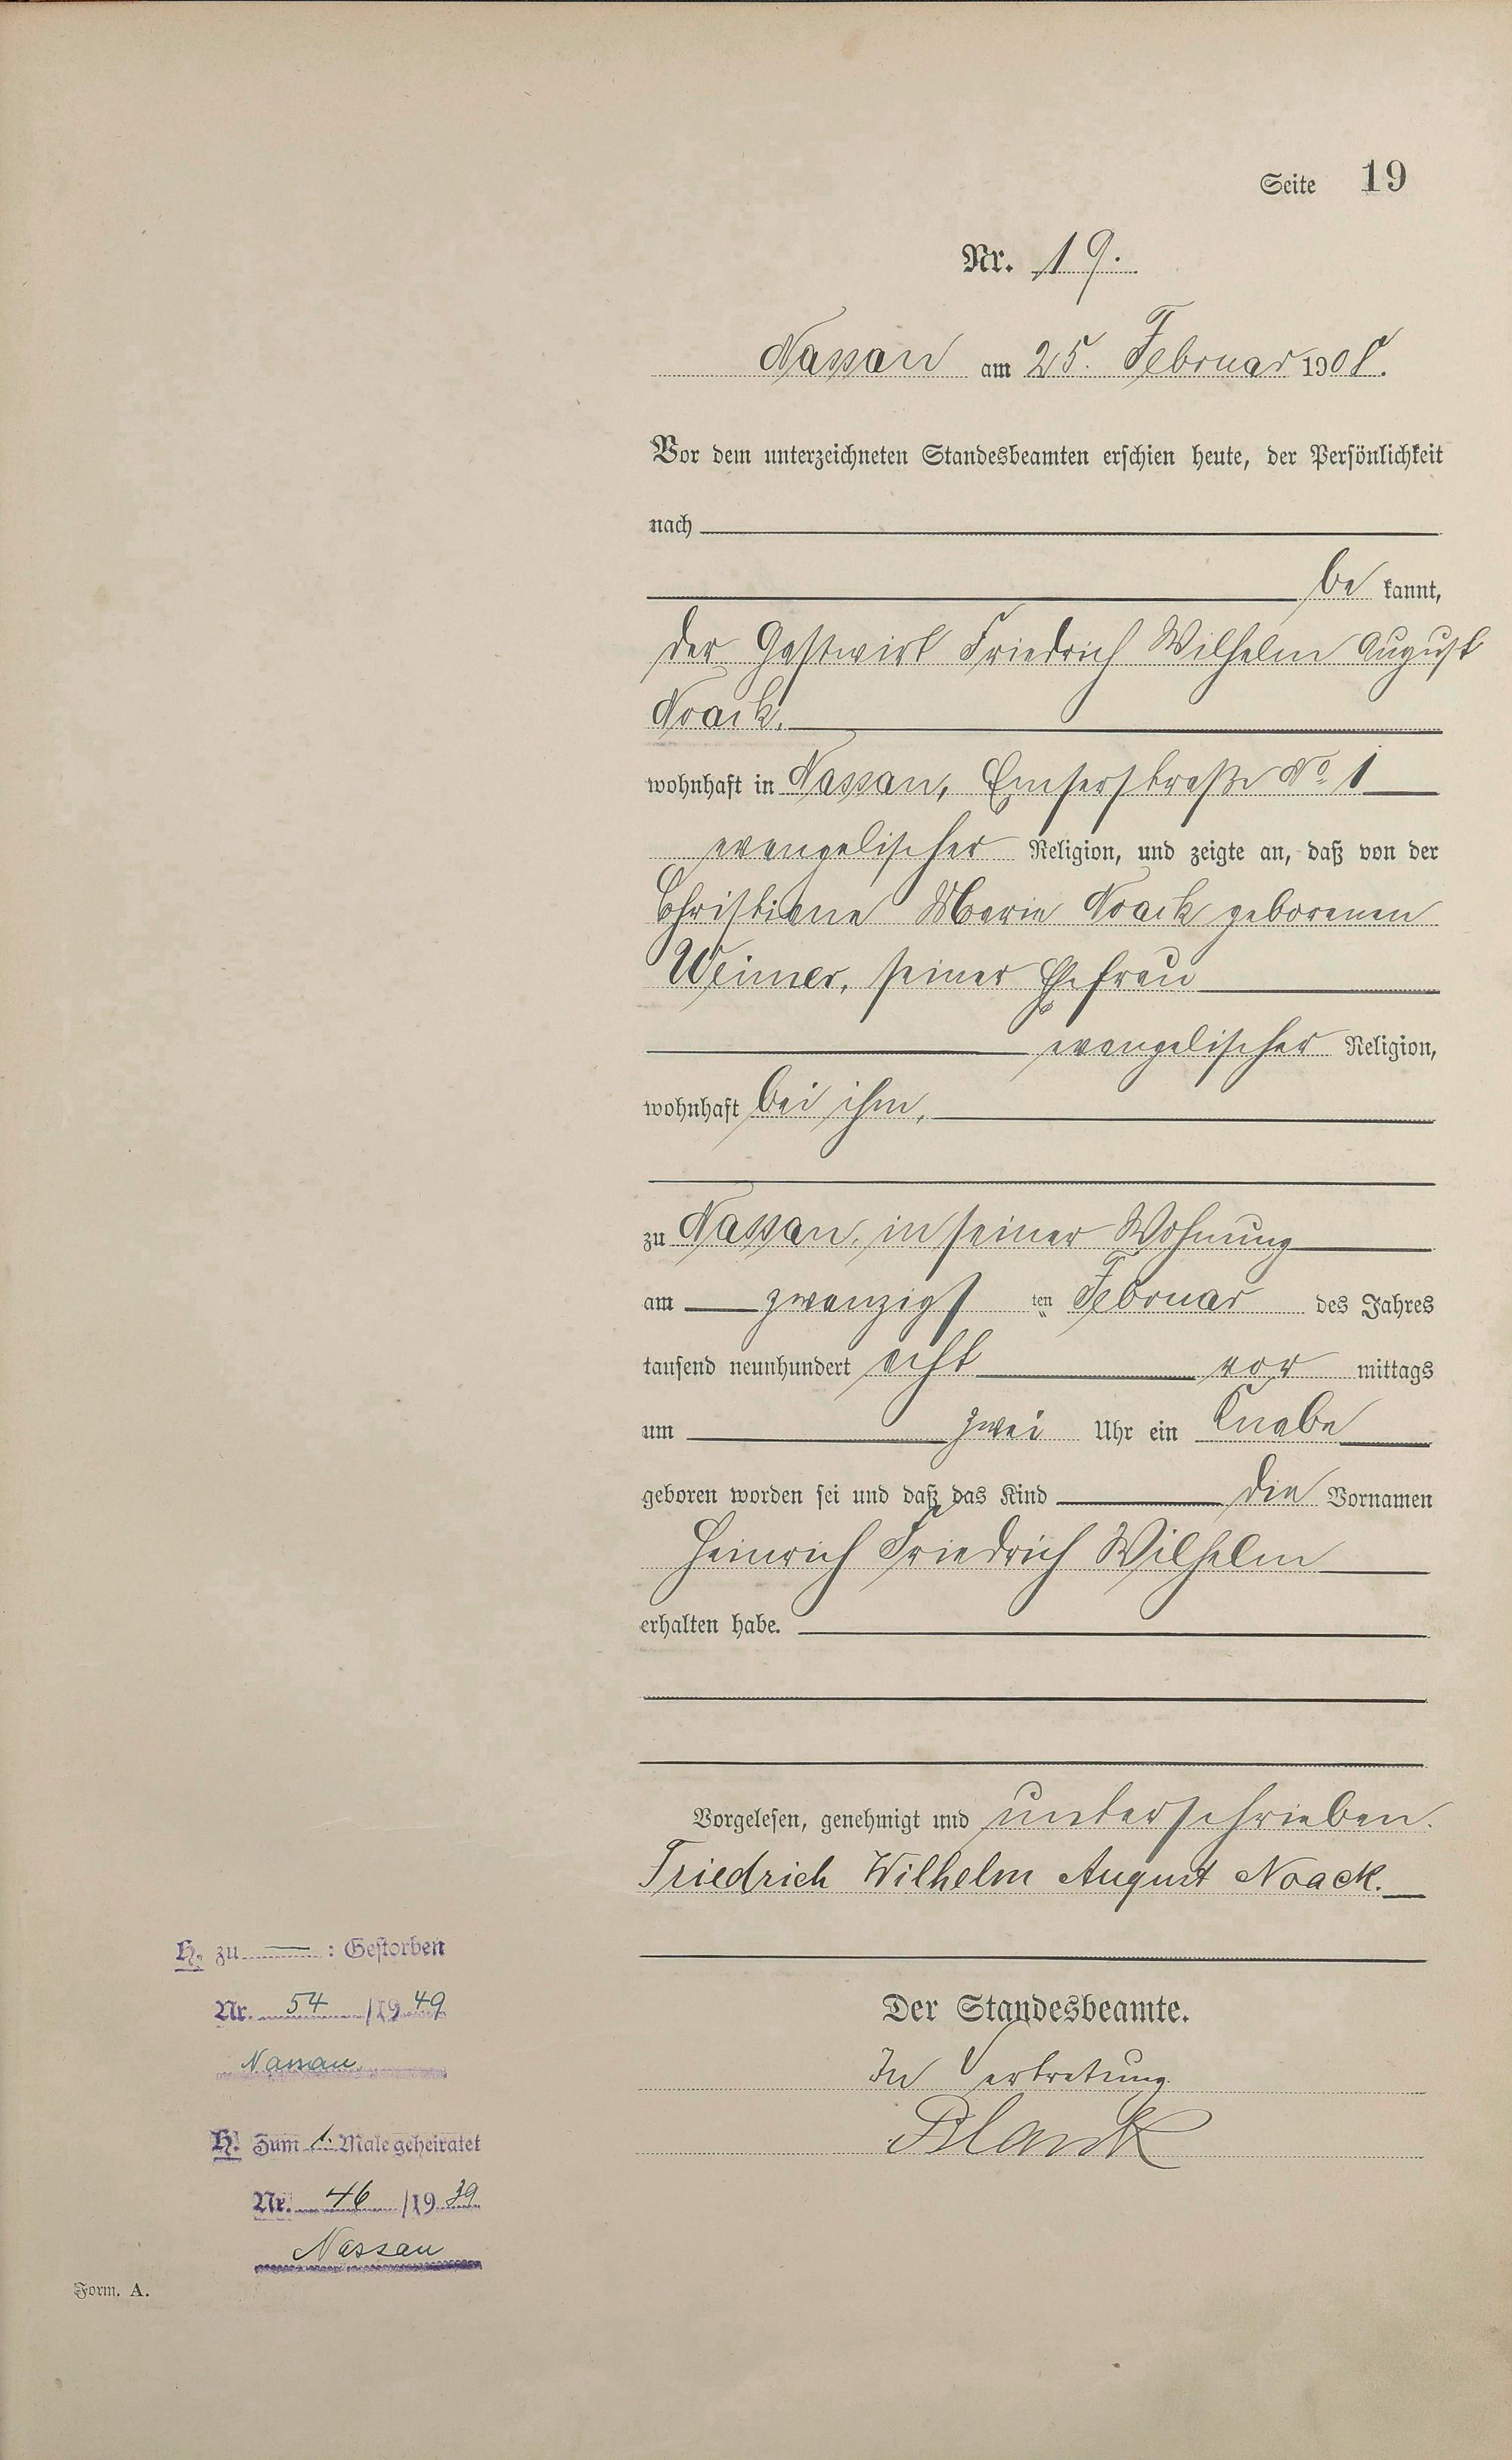 Seite 19
Nr. 19.
Nassau am 25. Februar 1908.
Vor dem unterzeichneten Standesbeamten erschien heute, der Persönlichkeit
nach
be kannt,
der Gastwirt Friedrich Wilhelm August
Noack,
wohnhaft in Nassau, Emserstraße No 1
evangelischer Religion, und zeigte an, daß von der
Christiane Marie Noack geborenen
Weimer, seiner Ehefrau
evangelischer Religion,
wohnhaft bei ihm,
zu Nassau, in seiner Wohnung
am zwanzigsten Februar des Jahres
tausend neunhundert acht vor mittags
um zwei Uhr ein Knabe
geboren worden sei und daß das Kind die Vornamen
Heinrich Friedrich Wilhelm
erhalten habe.
Vorgelesen, genehmigt und unterschrieben.
Friedrich Wilhelm August Noack.
Der Standesbeamte.
In Vertretung
H. zu — : Gestorben
Nr. 54 /1949
Nassau
H. Zum 1. Male geheiratet
Nr. 46 /1939
Nassau
Form. A.